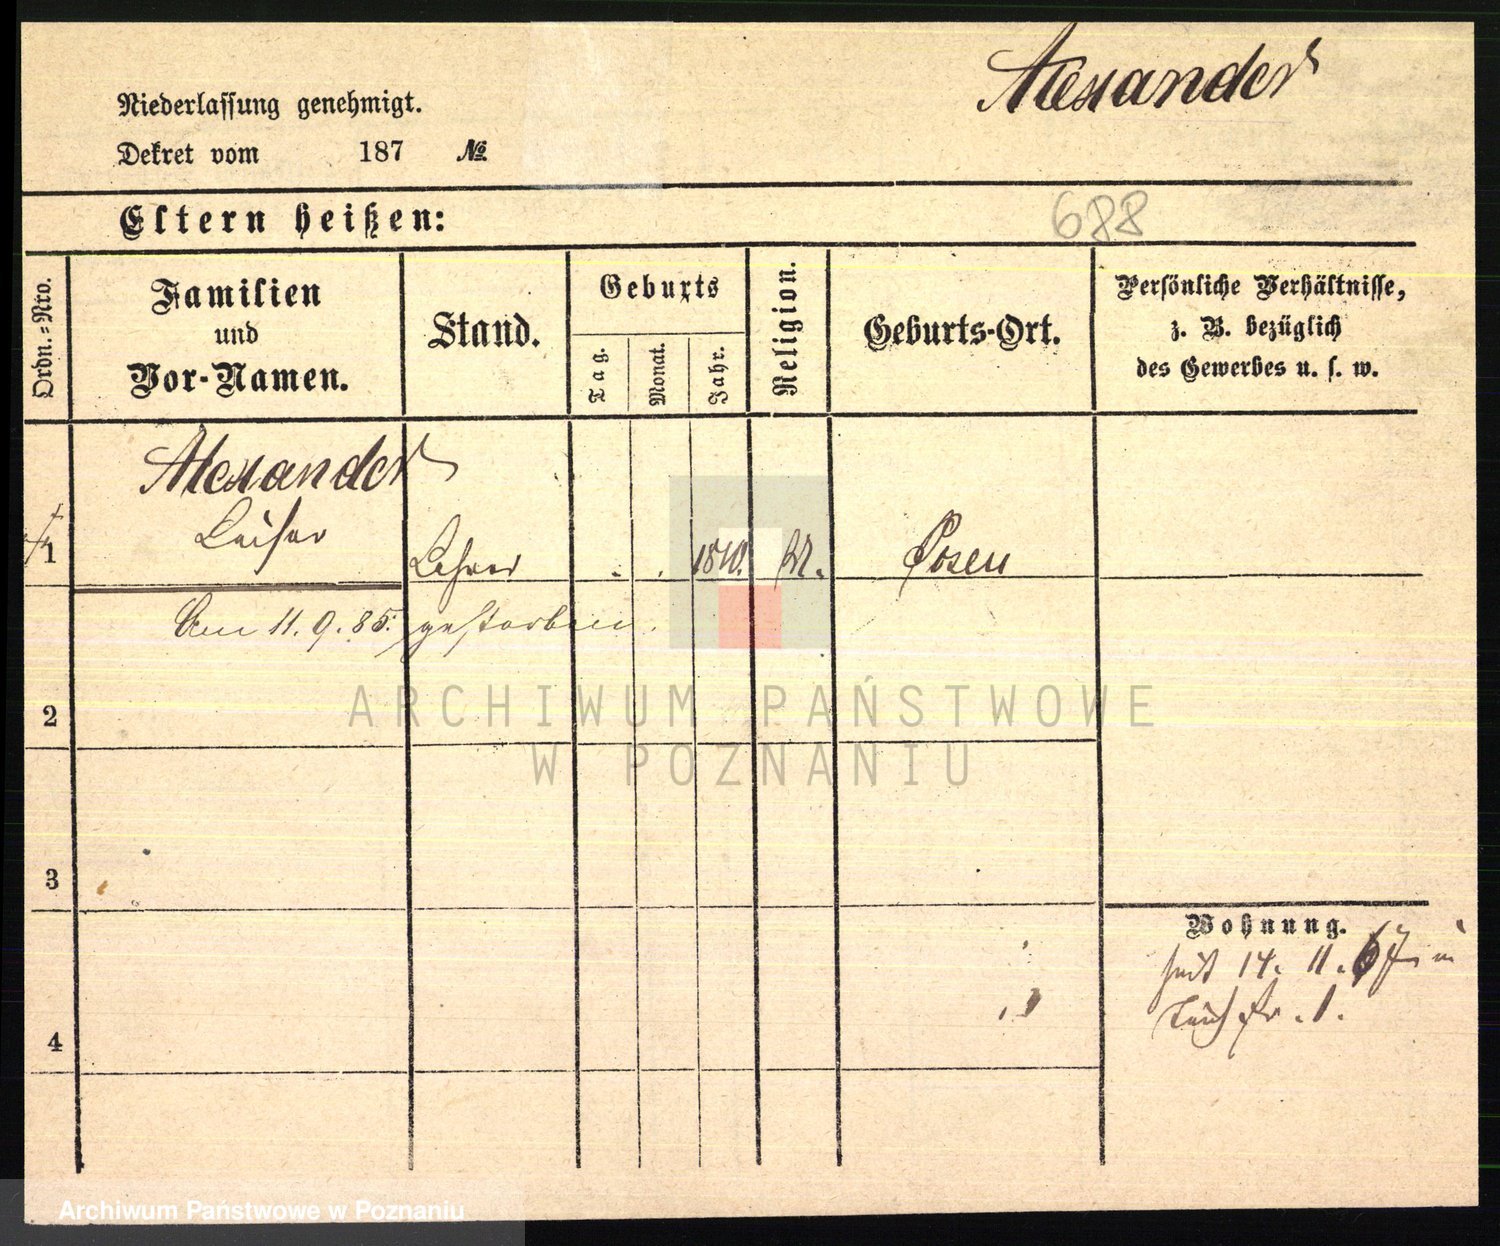 Alexander
Niederlassung genehmigt.
Dekret vom 187 №
688
Eltern heißen:
Ordn.=Nro.
Familien
und
Vor-Namen.
Stand.
Geburts
Tag.
Monat.
Jahr.
Religion.
Geburts-Ort.
Persönliche Verhältnisse,
z. B. bezüglich
des Gewerbes u. s. w.
Alexander
1 Leiser Lehrer 1810. M. Posen
Am 11.9.85. gestorben.
2
ARCHIWUM PAŃSTWOWE
W POZNANIU
3
Wohnung.
seit 14. 11. 67
4
Teichstr. 1.
Archiwum Państwowe w Poznaniu